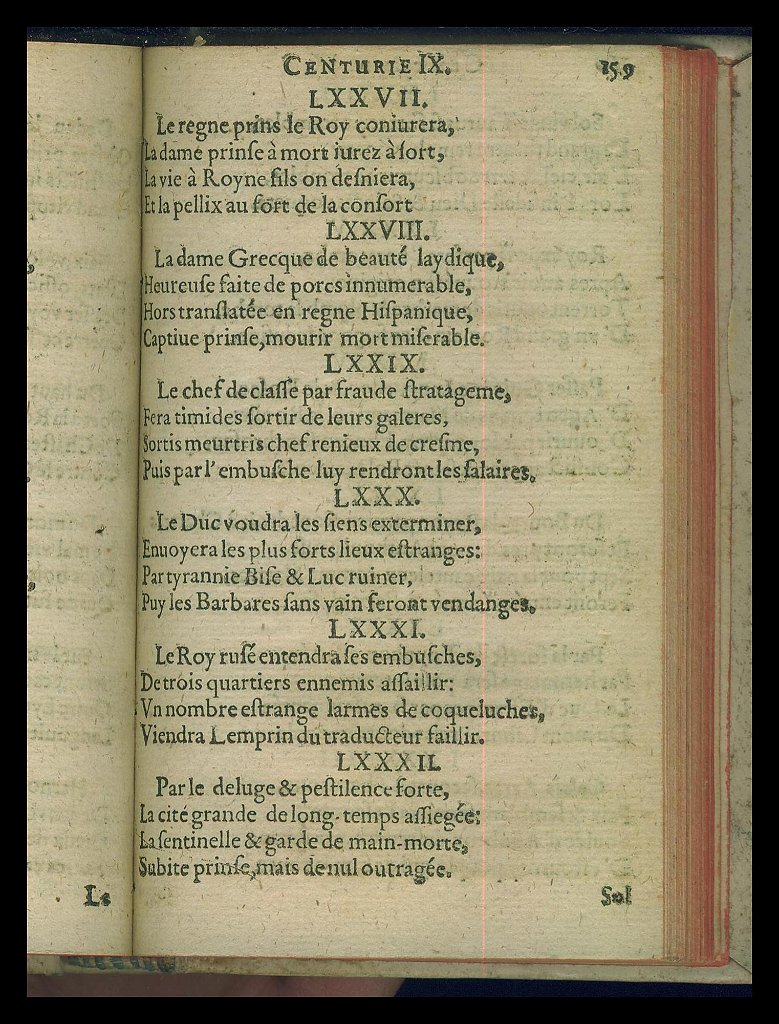 CENTURIE IX. 159
LXXVII.
Le regne prins le Roy coniurera,
La dame prinſe à mort iurez à ſort,
La vie à Royne fils on deſniera,
Et la pellix au fort de la conſort
LXXVIII.
La dame Grecque de beauté laydique,
Heureuſe faite de porcs innumerable,
Hors tranſlatée en regne Hiſpanique,
Captiue prinſe, mourir mort miſerable.
LXXIX.
Le chef de claſſe par fraude ſtratageme,
Fera timides ſortir de leurs galeres,
Sortis meurtris chef renieux de creſme,
Puis par l'embuſche luy rendront les ſalaires.
LXXX.
Le Duc voudra les ſiens exterminer,
Enuoyera les plus forts lieux eſtranges:
Par tyrannie Biſe & Luc ruiner,
Puy les Barbares ſans vain feront vendanges.
LXXXI.
Le Roy ruſé entendra ſes embuſches,
De trois quartiers ennemis aſſaillir:
Vn nombre eſtrange larmes de coqueluches,
Viendra Lemprin du traducteur faillir.
LXXXII.
Par le deluge & peſtilence forte,
La cité grande de long-temps aſſiegée:
La ſentinelle & garde de main-morte,
Subite prinſe, mais de nul outragée.
Le
Sol